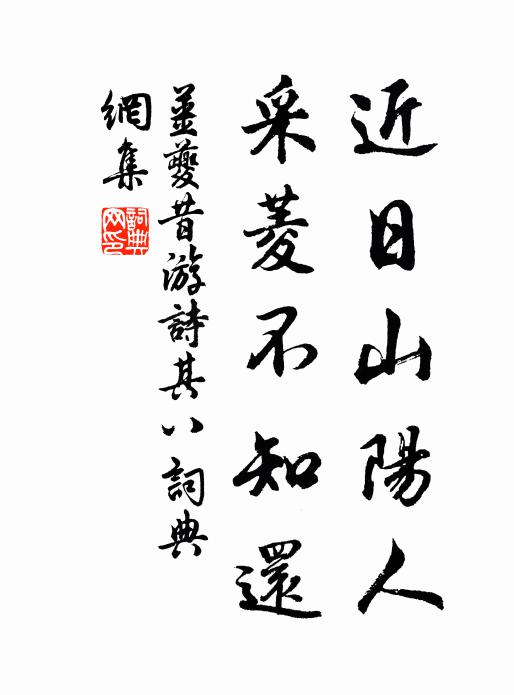 近日山陽人
采菱不知還
姜夔昔游詩其八 詞典
網集
詞典网印